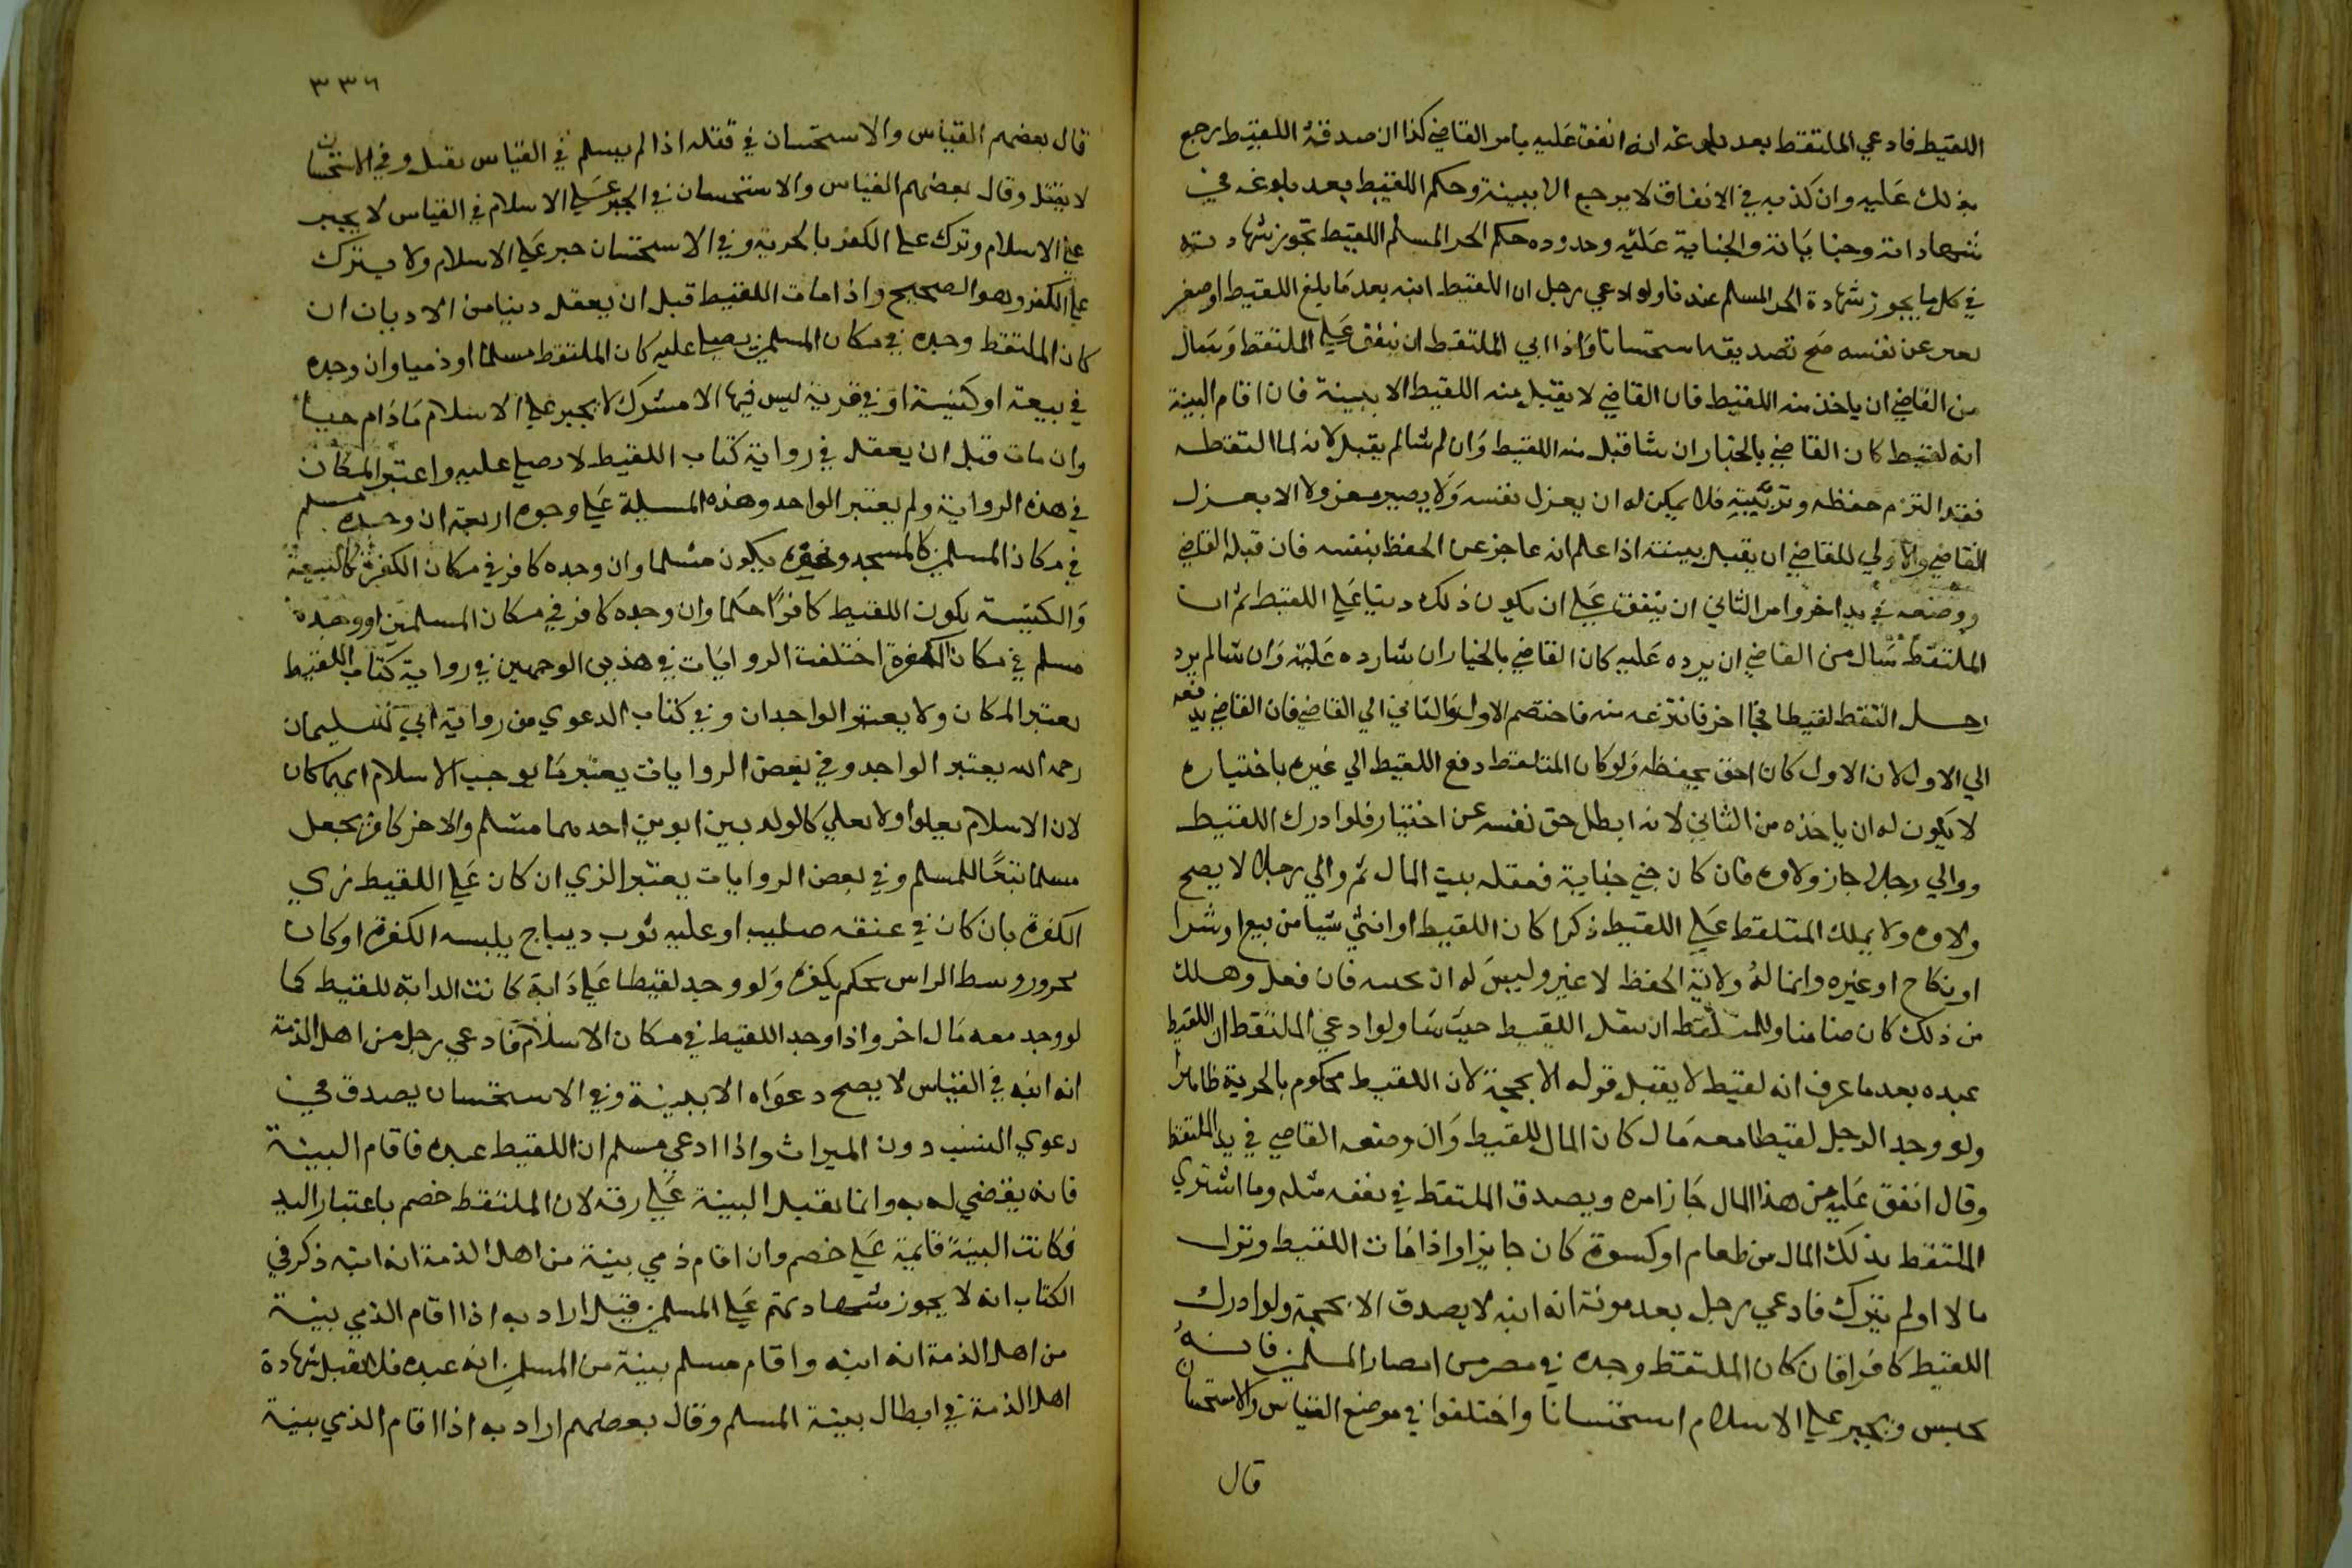 اللقيط فادعي الملتقط بعد بلوغه انه انفق عليه بامر القاضي كذا ان صدقه اللقيط رجع
بذلك عليه وان كذبه في الانفاق لا يرجع الا ببينة وحكم اللقيط بعد بلوغه في
شهاداته وجناياته والجناية عليه وحدوده حكم الحر المسلم اللقيط تجوز شهادته
في كل ما يجوز شهادة الحر المسلم عندنا ولو ادعي رجل ان اللقيط ابنه بعد ما بلغ اللقيط او صغير
يعبر عن نفسه صح تصديقه استحسانا واذا ابي الملتقط ان ينفق علي الملتقط وسال
من القاضي ان ياخذ منه اللقيط فان القاضي لا يقبل منه اللقيط الا ببينة فان اقام البينة
انه لقيط كان القاضي بالخيار ان شا قبل منه اللقيط وان لم شا لم يقبل لانه لما التقطه
فقد التزم حفظه وتربيته فلا يمكن له ان يعزل نفسه ولا يصير معزولا الا بعزل
القاضي والاولي للقاضي ان يقبل بينته اذا علم انه عاجز عن الحفظ بنفسه فان قبله القاضي
ووضعه في يد اخر وامر الثاني ان ينفق عليه علي ان يكون ذلك دينا علي اللقيط ثم ان
الملتقط سال من القاضي ان يرده عليه كان القاضي بالخيار ان شا رده عليه وان شا لم يرد
رجل التقط لقيطا فجا اخر فانتزعه منه فاختصم الاول والثاني الي القاضي فان القاضي يدفعه
الي الاول لان الاول كان احق بحفظه ولو كان الملتقط دفع اللقيط الي غيره باختياره
لا يكون له ان ياخذه من الثاني لانه ابطل حق نفسه عن اختيار فلو ادرك اللقيط
ووالي رجلا جاز ولاوه فان كان جني جناية فعقله بيت المال ثم والي رجلا لا يصح
ولاوه ولا يملك الملتقط علي اللقيط ذكرا كان اللقيط او انثي شيا من بيع او شرا
او نكاح او غيره وانما له ولاية الحفظ لا غير وليس له ان فان فعل وهلك
من ذلك كان ضامنا وللملتقط ان ينقل اللقيط حيث شا ولو ادعي الملتقط ان اللقيط
عبده بعد ما عرف انه لقيط لا يقبل قوله الا بحجة لان اللقيط محكوم بالحرية ظاهرا
ولو وجد الرجل لقيطا معه مال كان المال للقيط وان وضعه القاضي في يد الملتقط
وقال انفق عليه من هذا المال جاز امره ويصدق الملتقط في نفقه مثله وما اشتري
الملتقط بذلك المال من طعام او كسوة كان جايزا واذا مات اللقيط وترك
مالا او لم يترك فادعي رجل بعد موته انه ابنه لا يصدق الا بحجة ولو ادرك
اللقيط كافرا فان كان الملتقط وجده في مصر من امصار المسلمين فانه
يحبس ويجبر علي الاسلام استحسانا واختلفوا في موضع القياس والاستحسان
قال
٣٣٦
قال بعضهم القياس والاستحسان في قتله اذا لم يسلم في القياس يقتل وفي الاستحسان
لا يقتل وقال بعضهم القياس والاستحسان في الجبر علي الاسلام في القياس لا يجبر
علي الاسلام وترك علي الكفر بالحرية وفي الاستحسان جبر علي الاسلام ولا يترك
علي الكفر وهو الصحيح واذا مات اللقيط قبل ان يعقل دينا من الاديان ان
كان الملتقط وجده في مكان المسلمين يصلي عليه كان الملتقط مسلما او ذميا وان وجده
في بيعة او كنيسة او في قرية ليس فيها الا مشرك لا يجبر علي الاسلام ما دام حيا
وان مات قبل ان يعقل في رواية كتاب اللقيط لا يصلي عليه واعتبر المكان
في هذه الرواية ولم يعتبر الواجد وهذه المسيلة علي وجوه اربعة ان وجده مسلم
في مكان المسلمين كالمسجد ونحوه يكون مسلما وان وجده كافر في مكان الكفرة كالبيعة
والكنيسة يكون اللقيط كافرا حكما وان وجده كافر في مكان المسلمين او وجده
مسلم في مكان الكفرة اختلفت الروايات في هذين الوجهين في رواية كتاب اللقيط
يعتبر المكان ولا يعتبر الواجدان وفي كتاب الدعوي من رواية ابي سليمان
رحمه الله يعتبر الواجد وفي بعض الروايات يعتبر ما يوجب الاسلام ايهما كان
لان الاسلام يعلوا ولا يعلي كالولد بين ابوين احدهما مسلم والاخر كافر يجعل
مسلما تبعا للمسلم وفي بعض الروايات يعتبر الزي ان كان علي اللقيط زي
الكفرة بان كان في عنقه صليب او عليه ثوب ديباج يلبسه الكفرة او كان
محزوز وسط الراس يحكم بكفره ولو وجد لقيطا علي دابة كانت الدابة للقيط كما
لو وجد معه مال اخر واذا وجد اللقيط في مكان الاسلام فادعي رجل من اهل الذمة
انه ابنه في القياس لا يصح دعواه الا ببينة وفي الاستحسان يصدق في
دعوي النسب دون الميراث واذا ادعي مسلم ان اللقيط عبده فاقام البينة
فانه يقضي له به وانما تقبل البينة علي رقه لان الملتقط خصم باعتبار اليد
فكانت البينة قايمة علي خصم وان اقام ذمي بينة من اهل الذمة انه ابنه ذكر في
الكتاب انه لا يجوز شهادتهم علي المسلمين قيل اراد به اذا اقام الذمي بينة
من اهل الذمة انه ابنه واقام مسلم بينة من المسلمين انه عبده فلا تقبل شهادة
اهل الذمة في ابطال بينة المسلم وقال بعضهم اراد به اذا اقام الذي بينة